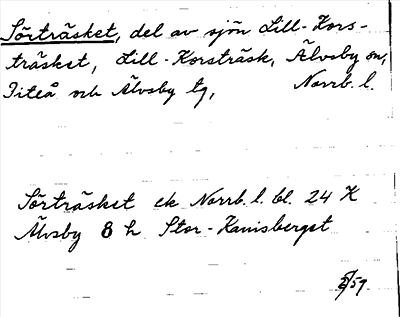 Sörträsket, del av sjön Lill-Kors-
träsket, Lill-Korsträsk, Älvsby sn,
Piteå och Älvsby tg, Norrb. l.
Sörträsket ek Norrb. l. bl. 24 K
Älvsby 8 h Stor-Kanisberget
/59